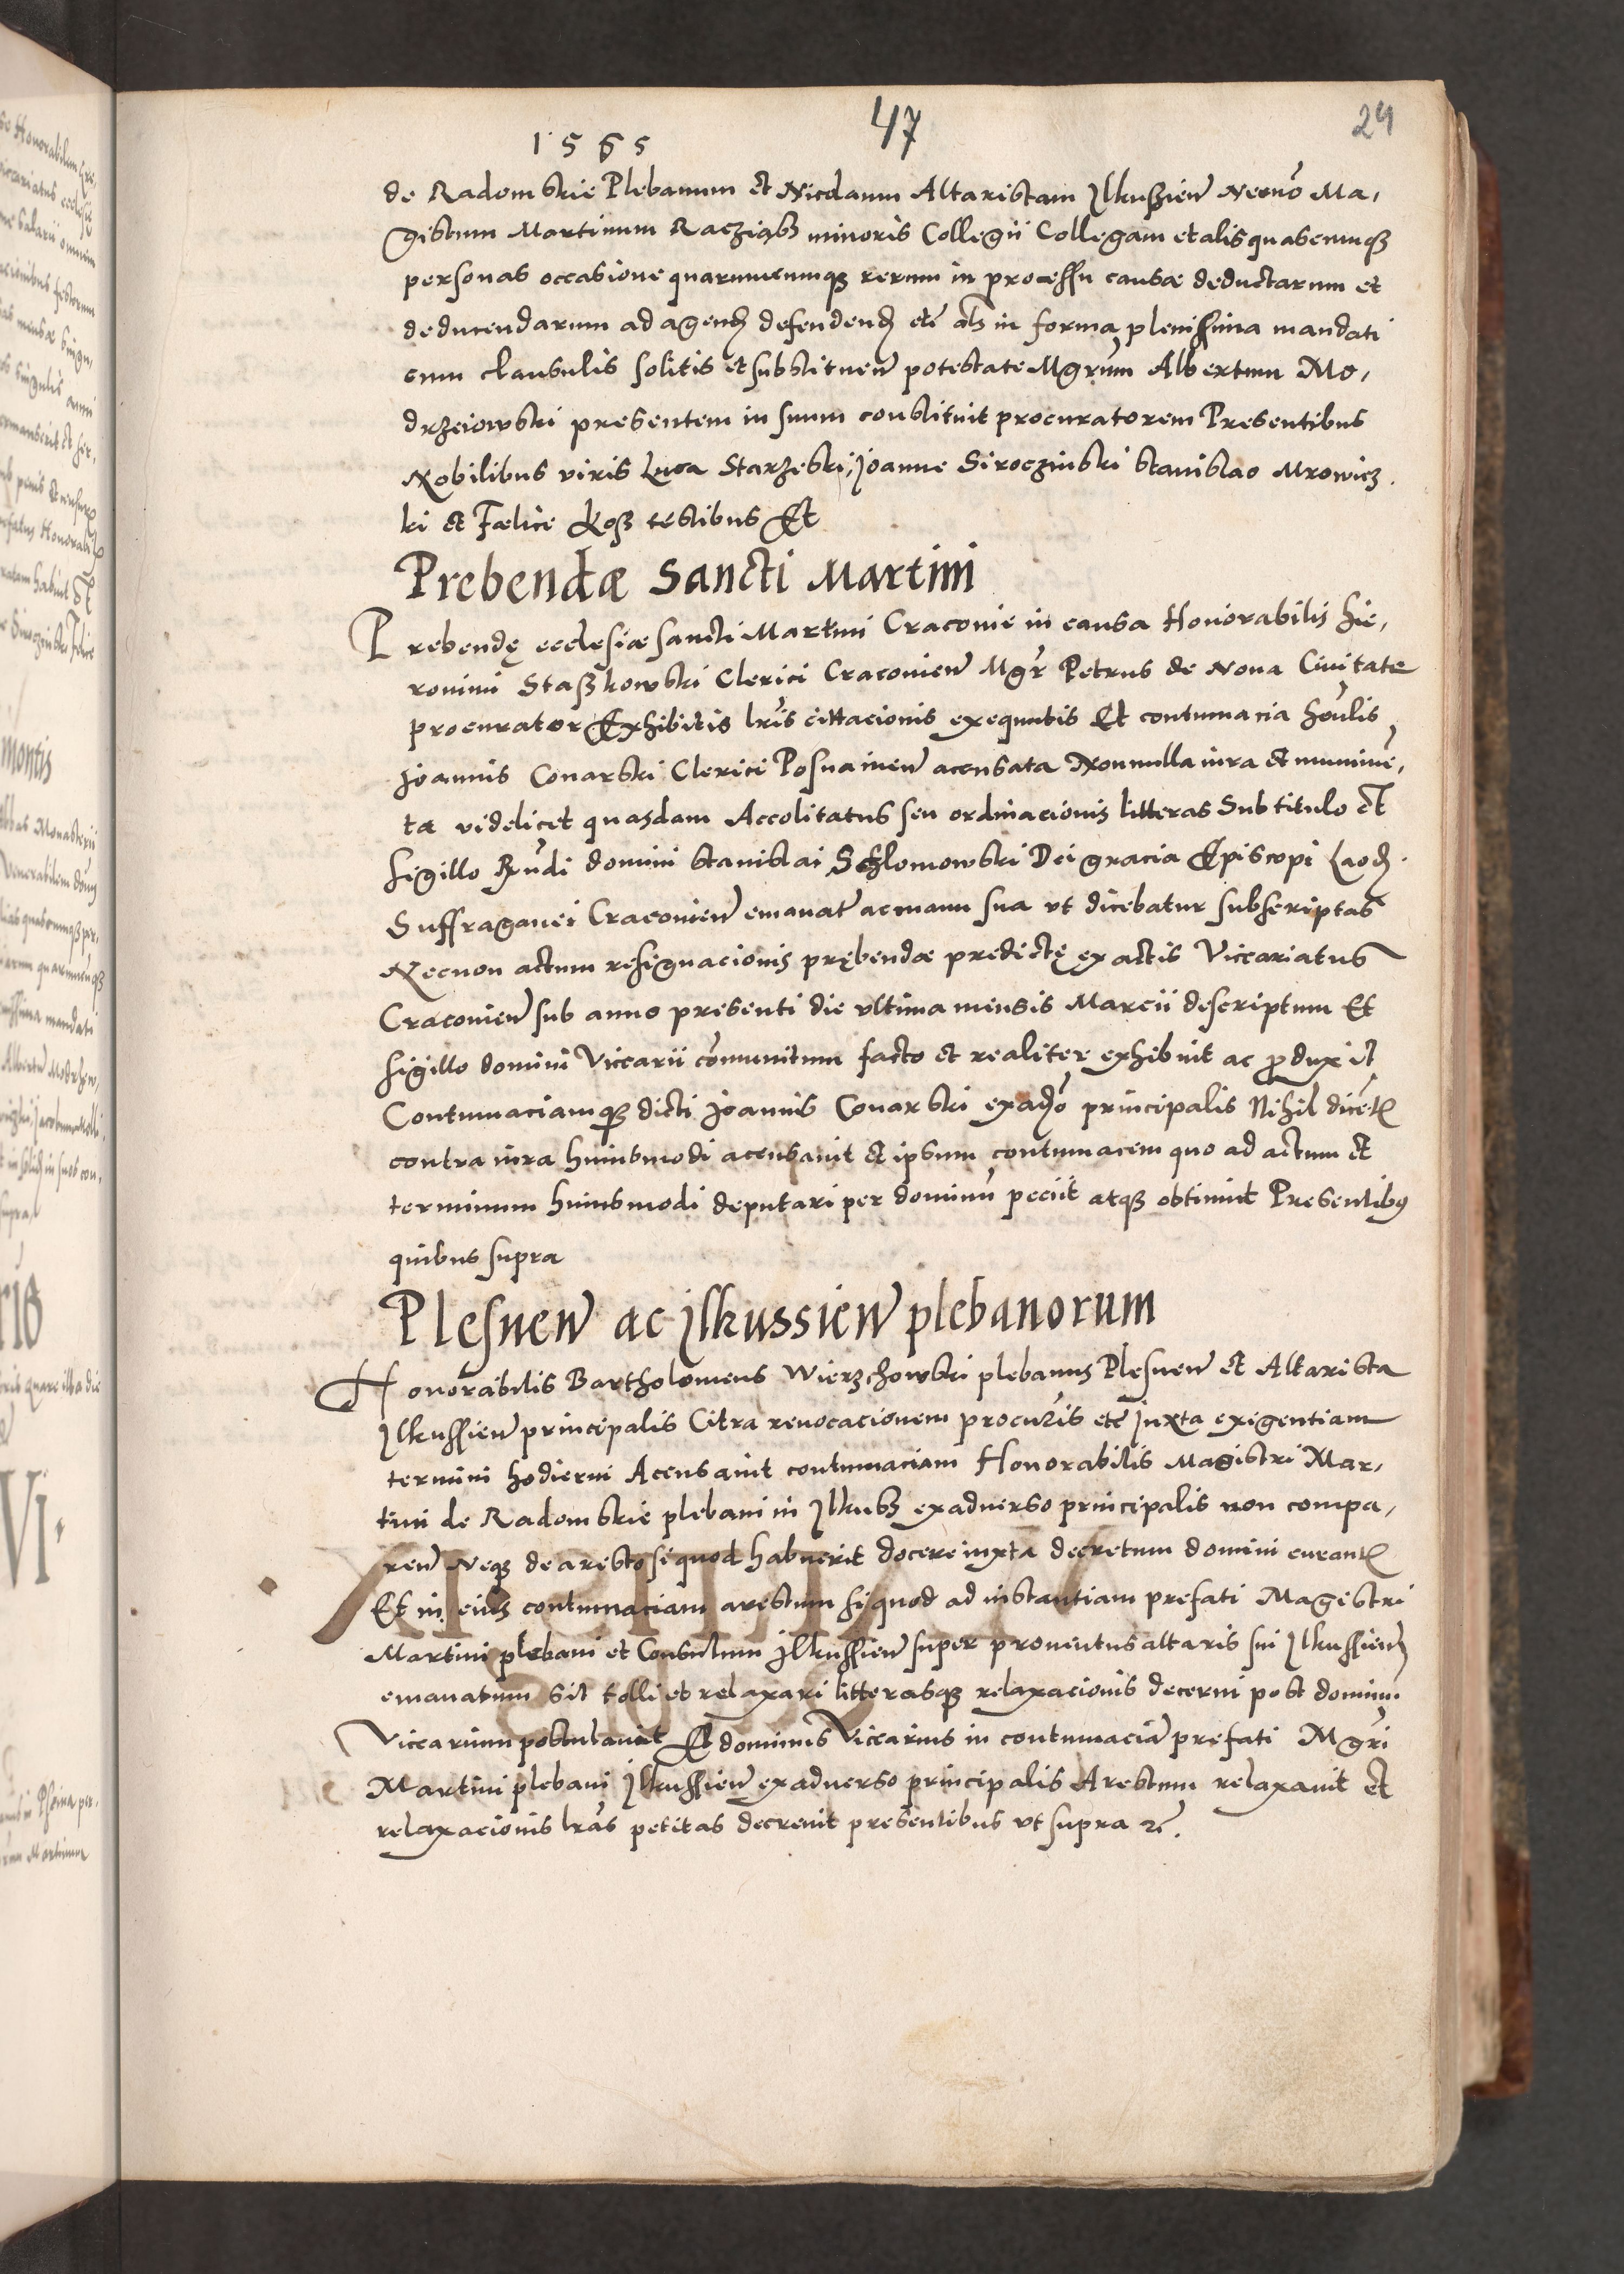 1565
47
24
de Radomskie Plebanum et Nicolaum Altaristam Ilkuszien̄ Necnō Ma,
gistrum Martinum Racziąsz minoris Collegii Collegam et alis quascumqȝ
personas occasione quarumcumqȝ rerum in processu causæ deductarum et
deducendarum ad agend̄ defendend̄ etc̄ als in forma plenissima mandati
cum clausulis solitis et substituen̄ potestate Mgrūm Albertum Mo,
drzeiowski presentem in suum constituit procuratorem Presentibus
Nobilibus viris Luca Starzeski, Joanne Siroczinski Stanislao Mrowicz
ki et Fœlice Kosz testibus Et
Prebendæ Sancti Martini
Prebendę ecclesiæ sancti Martini Craconie in causa Honorabilis Hie,
ronimi Staszkowski Clerici Craconien̄ Mgr̄ Petrus de Nova Civitate
procurator Exhibitis lr̄is cittacionis exequutis Et contumacia honlis̄
Joannis Conarski Clerici Posnanien̄ acusata Nonnulla iura et munimē,
ta videlicet quasdam Accolitatus seu ordinacionis litteras Sub titulo et
sigillo Rn̄di domini Stanislai Sczlomowski Dei gracia Episcopi Laod̄.
Suffraganei Craconien̄ emanat̄ ac manu sua vt dicebatur subscriptas
Necnon actum resignacionis prębendæ predictę ex actis Vicariatus
Craconien̄ sub anno presenti die vltima mensis Marcii descriptum Et
sigillo domini Vicarii cōmunitum facto et realiter exhibuit ac produxit
Contumaciamqȝ dicti Joannis Conarski exad̄o principalis Nihil dicēt̄
contra iura huiusmodi acusauit et ipsum contumacem quo ad actum et
terminum huiusmodi deputari per dominū peciit atqȝ obtinuit Presentibꝰ
quibus supra
Plesnen̄ ac Ilkussien̄ plebanorum
Honorabilis Bartholomeus Wierzchowski plebanus Plesnen̄ et Altarista
Ilkussien̄ principalis Citra reuocacionem procur̄is etc̄ Juxta exigentiam
termini hodierni Acusauit contumaciam Honorabilis Magistri Mar,
tini de Radomskie plebani in Ilkusz exaduerso principalis non compa,
ren̄ Neqȝ de aresto si quod habuerit docere iuxta decretum domini curant̄
Et in eius contumaciam arestum si quod ad instantiam prefati Magistri
Martini plebani et Consulum Ilkussien̄ super prouentus altaris sui Ilkussien̄
emanatum sit tolli et relaxari litterasqȝ relaxacionis decerni post dominum
Vicarium postulauit Et dominus Vicarius in contumaciā prefati Mgr̄i
Martini plebani Ilkussien̄ exaduerso principalis Arestum relaxauit et
relaxacionis lr̄as petitas decreuit presentibus vt supra etc̄.